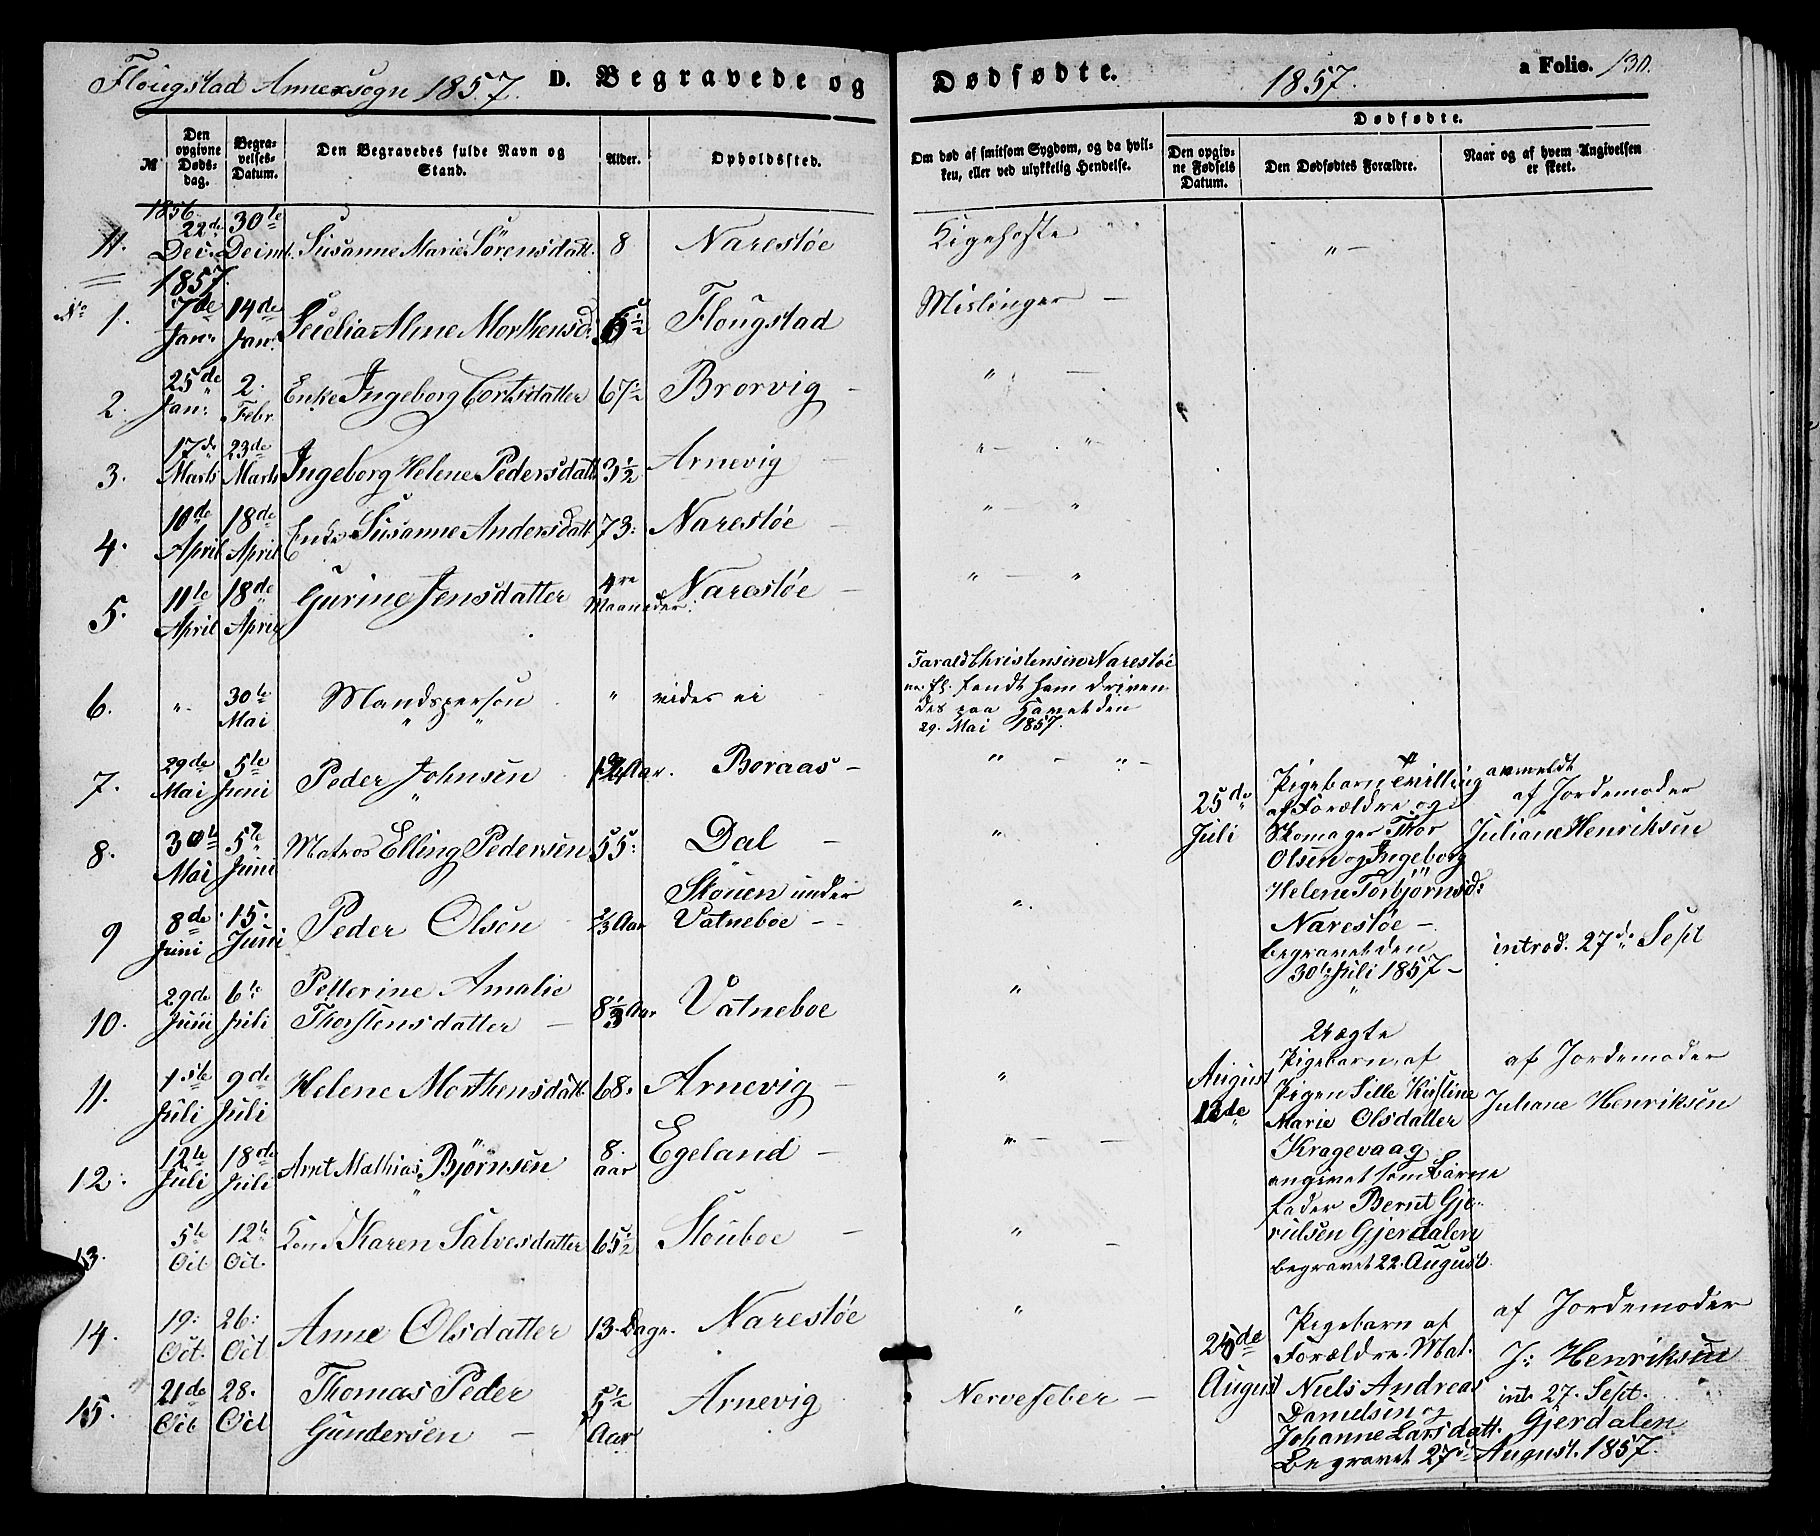 Flougstad Annexsogn 1857. D. Begravede og Dødfødte. 1857. a Folio. 130.
№
Den opgivne Dødsdag.
Begravelses-Datum.
Den Begravedes fulde Navn og Stand.
Alder.
Opholdssted.
Om død af smitsom Sygdom, og da hvilken, eller ved ulykkelig Hendelse.
Dødfødte.
Den opgivne Fødsels Datum.
Den Dødfødtes Forældre.
Naar og af hvem Angivelsen er skeet.
1856.
11. 22de Dec. 30te Decmb. Susanne Marie Sörensdatt. 8 Narestøe Kigehoste " —
1857.
No 1. 7de Jan: 14de Jan: Secelia Aline Morthensd: Flougstad Meslinger —
2. 25de Jan: 2. Febr. Enke Ingeborg Cortsdatter 67½ Brorvig — " —
3. 17de Marts 23de Marts Ingeborg Helene Pedersdatt. 3½ Arnevig — " — "
4. 10de April 18de April Enke Susanne Andersdatt. 73: Narestøe — " — "
5. 11te April 18de April Gurine Jensdatter 4re Maaneder: Narestøe — " — "
6. " 30te Mai Mandsperson " vides ei
Tarald Christensen Narestøe
m. fl. fandt ham driven-
des paa Havet den
29. Mai 1857.
7. 29de Mai 5te Juni Peder Johnsen Aar. Boraas — " — " —
8. 30te Mai 5te Juni Matros Elling Pedersen 55: Dal — "
9 8de Juni 15. Juni Peder Olsen ⅔ Aar Skouen under Vatneboe — "
10. 29de Juni 6te Juli Petterine Amalie Thorstensdatter — 8⅓ Aar Vatneboe "
11. 1ste Juli 9de Juli Helene Morthensdatt. 68. Arnevig — "
12. 12te Juli 18de Juli Arnt Mathias Bjørnsen 8. aar Egeland — " — —
13. 5te Oct. 12te Oct. Karen Salvesdatter 65½ Skouboe — " —
14. 19: Oct. 26: Oct Anne Olsdatter 13. Dage. Narestøe "
15. 21de Oct 28. Oct Thomas Peder Gundersen — 5½ Aar Arnevig Nervefeber —
25de Juli
Pigebarn tvilling
af Forældre
Skomager Thor
Olsen og Ingeborg
Helene Torbjörnsd:
Narestøe —
begravet den
30te Juli 1857 —
anmeldt
af Jordemoder
Juliane Henriksen
introd. 27de Sept
August 12de
Uægte
Pigebarn af
Pigen Sille Kirstine
Marie Olsdatter
Kragevaag
angivet som Barne
fader Bernt Gje-
rulsen Gjerdalen
begravet 22. August.
af Jordemoder
Juliane Henriksen
25de August
Pigebarn af
Forældre. Mat.
Niels Andreas
Danielsen og
Johanne Larsdatt. Gjerdalen
Begravet 27de August. 1857.
af Jordemoder
J: Henriksen
int. 27. Sept.